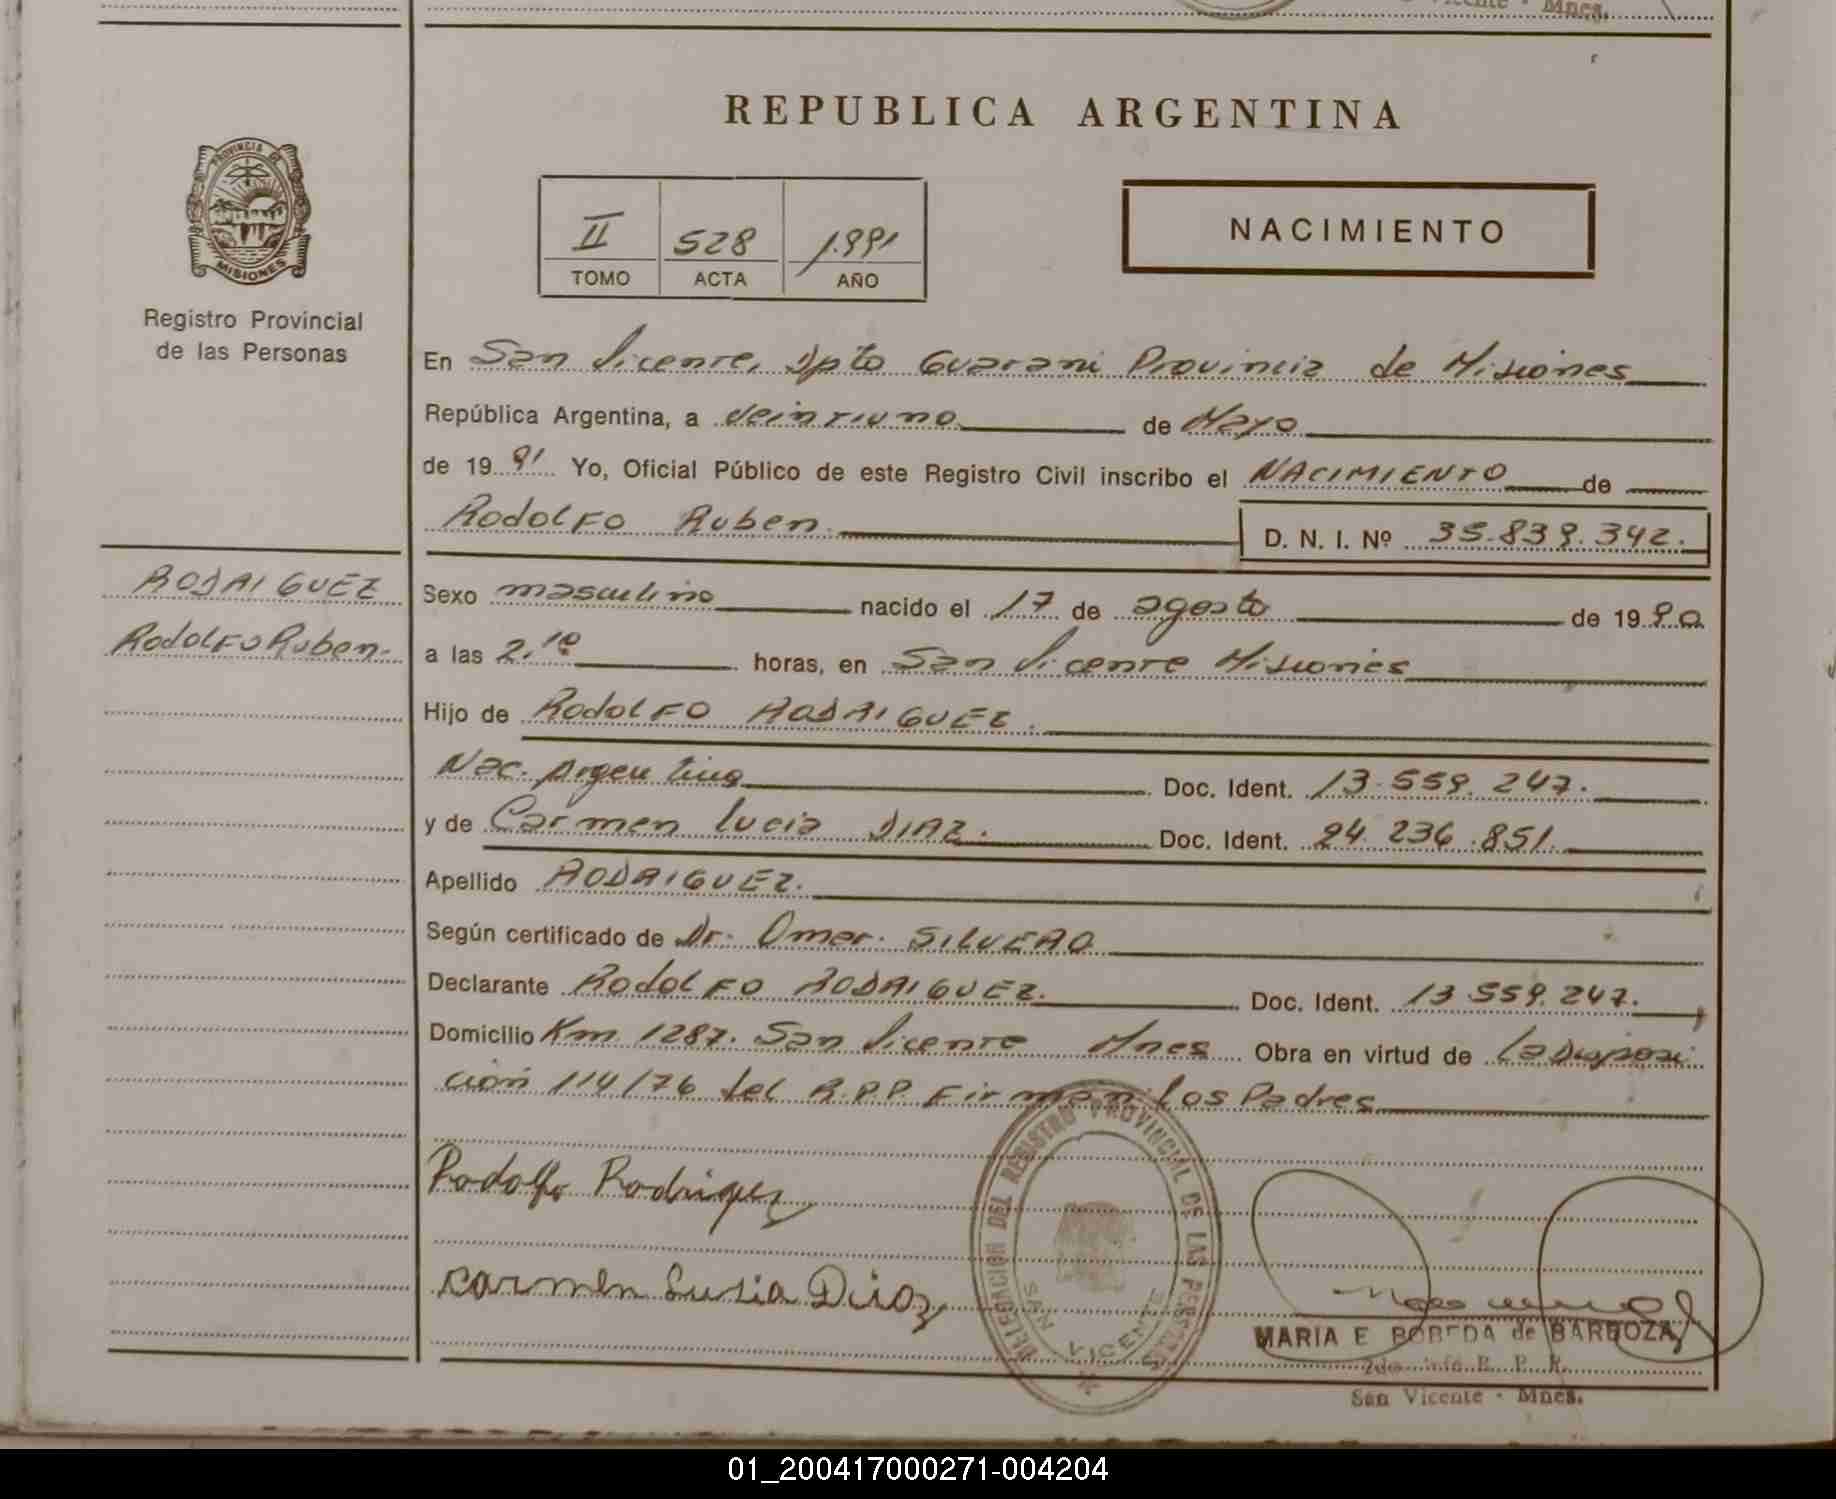 Vicente - Mnes.
REPUBLICA ARGENTINA
PROVINCIA DE
MISIONES
Registro Provincial
de las Personas
II 528 1.991
TOMO ACTA AÑO
NACIMIENTO
En San Vicente, Dpto Guarani Provincia de Misiones
República Argentina, a veintiuno de Mayo
de 1991 Yo, Oficial Público de este Registro Civil inscribo el NACIMIENTO de
Rodolfo Ruben. D. N. I. Nº 35.839.342.
RODRIGUEZ
Rodolfo Ruben.
Sexo masculino nacido el 17 de agosto de 1990
a las 2.10 horas, en San Vicente Misiones
Hijo de Rodolfo RODRIGUEZ.
Nac. Argentina Doc. Ident. 13.559.247.
y de Carmen Lucia DIAZ. Doc. Ident. 24.236.851.
Apellido RODRIGUEZ.
Según certificado de Dr. Omar. SILVERO
Declarante Rodolfo RODRIGUEZ. Doc. Ident. 13.559.247.
Domicilio Km 1287. San Vicente Mnes Obra en virtud de la Disposi
ción 114/76 del R.P.P. Firman los Padres
Rodolfo Rodriguez
Carmen Lusia Diaz
DELEGACION DEL REGISTRO PROVINCIAL DE LAS PERSONAS
SAN VICENTE
MARIA E BOBEDA de BARBOZA
R. P. P.
San Vicente - Mnes.
01_200417000271-004204